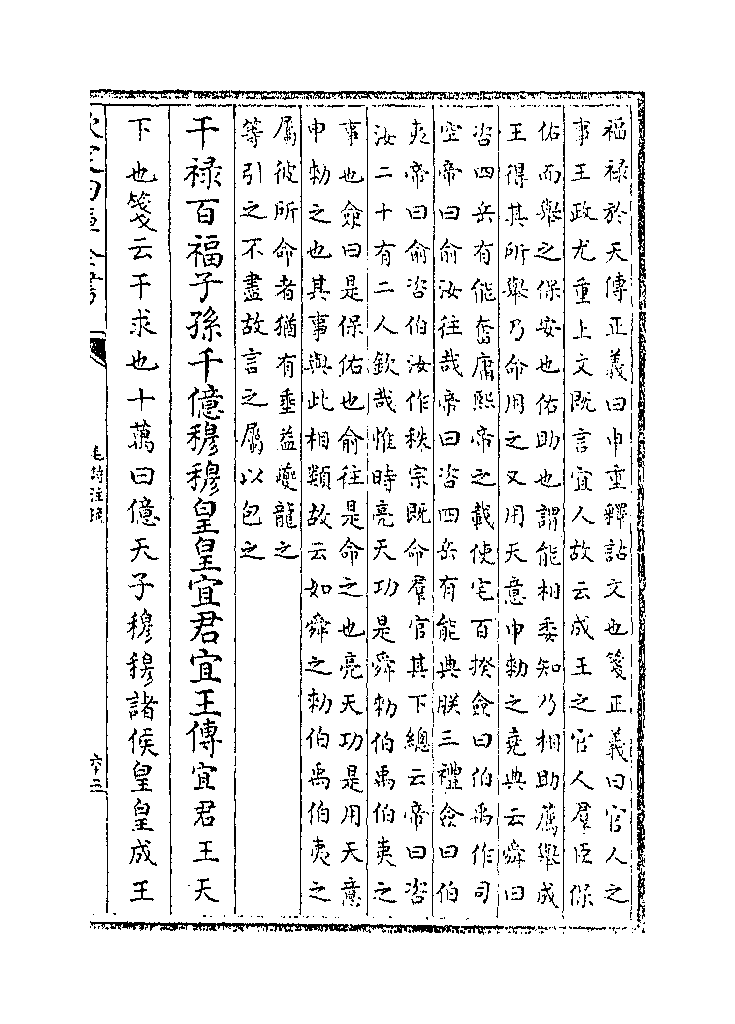 福禄於天傳正義曰申重釋詁文也箋正義曰官人之
事王政尤重上文既言宜人故云成王之官人羣臣保
佑而舉之保安也佑助也謂能相委知乃相助薦舉成
王得其所舉乃命用之又用天意申勅之堯典云舜曰
咨四岳有能奮庸熙帝之載使宅百揆僉曰伯禹作司
空帝曰俞汝往哉帝曰咨四岳有能典朕三禮僉曰伯
夷帝曰俞咨伯汝作秩宗既命羣官其下總云帝曰咨
汝二十有二人欽哉惟時亮天功是舜勅伯禹伯夷之
事也僉曰是保佑也俞往是命之也亮天功是用天意
申勅之也其事與此相類故云如舜之勅伯禹伯夷之
屬彼所命者猶有垂益夔龍之
等引之不盡故言之屬以包之
干禄百福子孫千億穆穆皇皇宜君宜王傳宜君王天
下也箋云干求也十萬曰億天子穆穆諸侯皇皇成王
欽定四庫全書
毛詩注疏
六十三